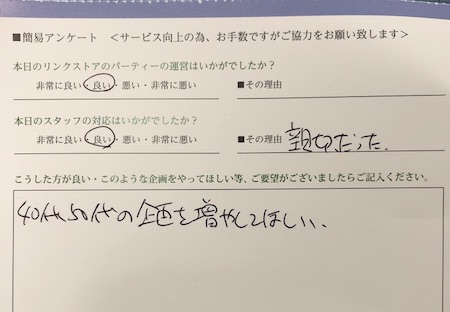 ■簡易アンケート ＜サービス向上の為、お手数ですがご協力をお願い致します＞
本日のリンクストアのパーティーの運営はいかがでしたか？
非常に良い・良い・悪い・非常に悪い ■その理由
本日のスタッフの対応はいかがでしたか？
非常に良い・良い・悪い・非常に悪い ■その理由 親切だった.
こうした方が良い・このような企画をやってほしい等、ご要望がございましたらご記入ください。
40代50代の企画を増やしてほしい、